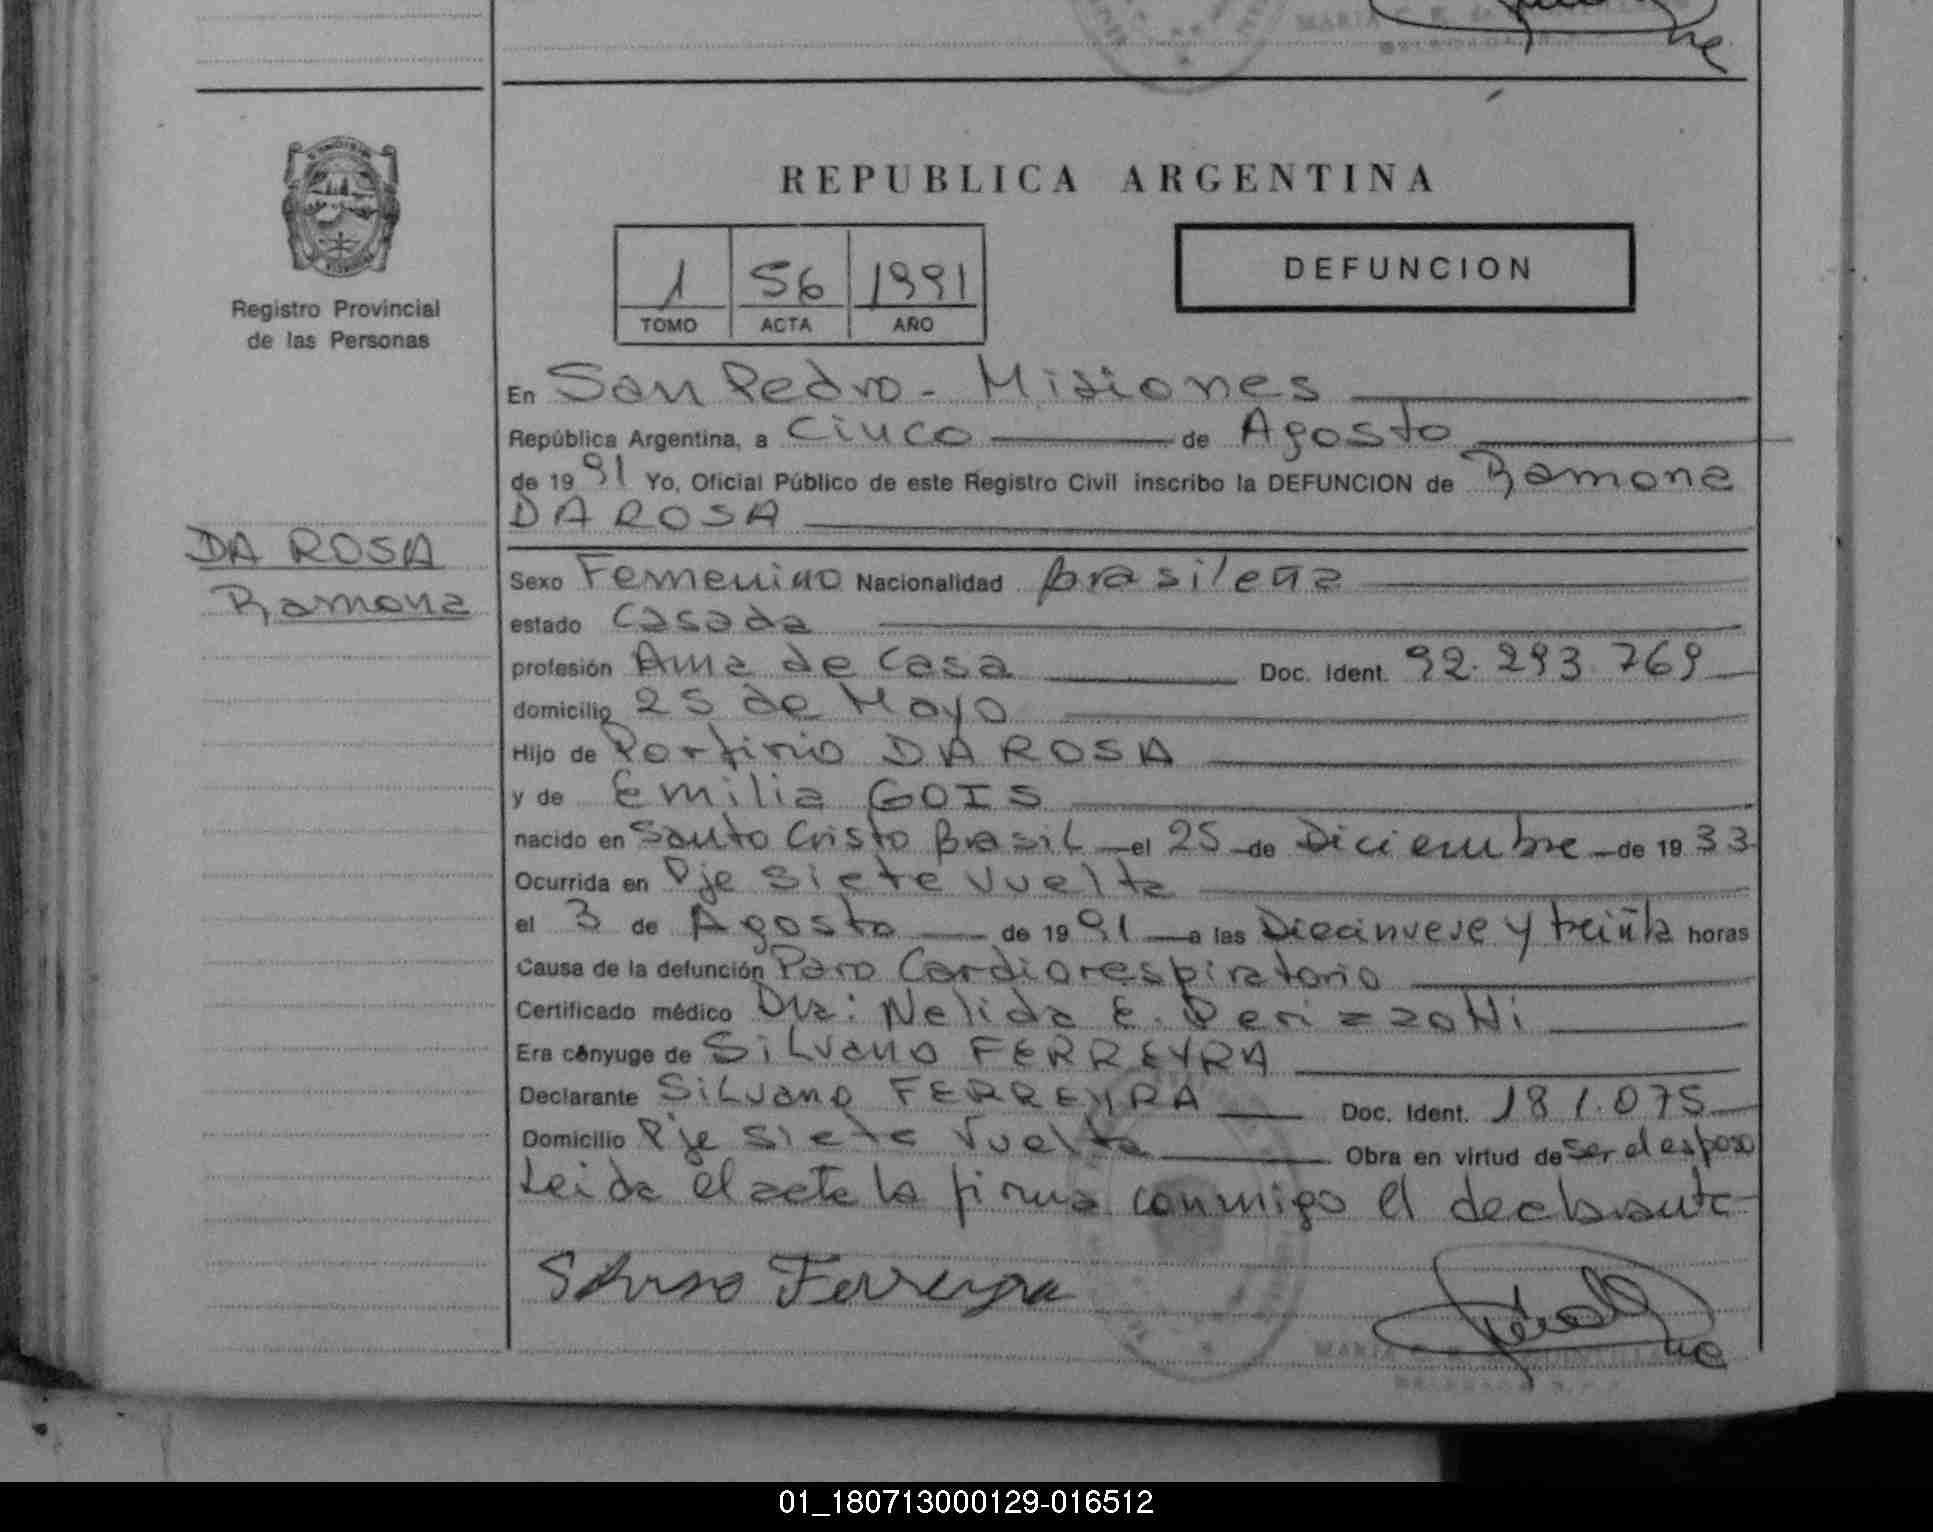 REPUBLICA ARGENTINA
Registro Provincial
de las Personas
1 56 1991
TOMO ACTA AÑO
DEFUNCION
En San Pedro - Misiones
República Argentina, a Cinco de Agosto
de 1991 Yo, Oficial Público de este Registro Civil inscribo la DEFUNCION de Ramona
DA ROSA
DA ROSA
Ramona
Sexo Femenino Nacionalidad brasileña
estado Casada
profesión Ama de Casa Doc. Ident. 92.293.769
domicilio 25 de Mayo
Hijo de Porfirio DA ROSA
y de Emilia GOIS
nacido en Santo Cristo Brasil el 25 de Diciembre de 1933
Ocurrida en Pje Siete Vuelta
el 3 de Agosto de 1991 a las Diecinueve y treinta horas
Causa de la defunción Paro Cardiorespiratorio
Certificado médico Dra: Nelida E.
Era cónyuge de Silvano FERREYRA
Declarante Silvano FERREYRA Doc. Ident. 181.075
Domicilio Pje Siete Vuelta Obra en virtud de ser el esposo
Leida el acta la firma conmigo el declarante
Silvano Ferreyra
01_180713000129-016512